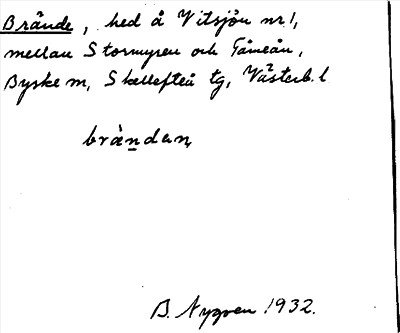 Brände, hed å Vitsjön nr 1,
mellan Stormyren och Tåmeån,
Byske m, Skellefteå tg, Västerb. l
brändan,
B. Nygren 1932.